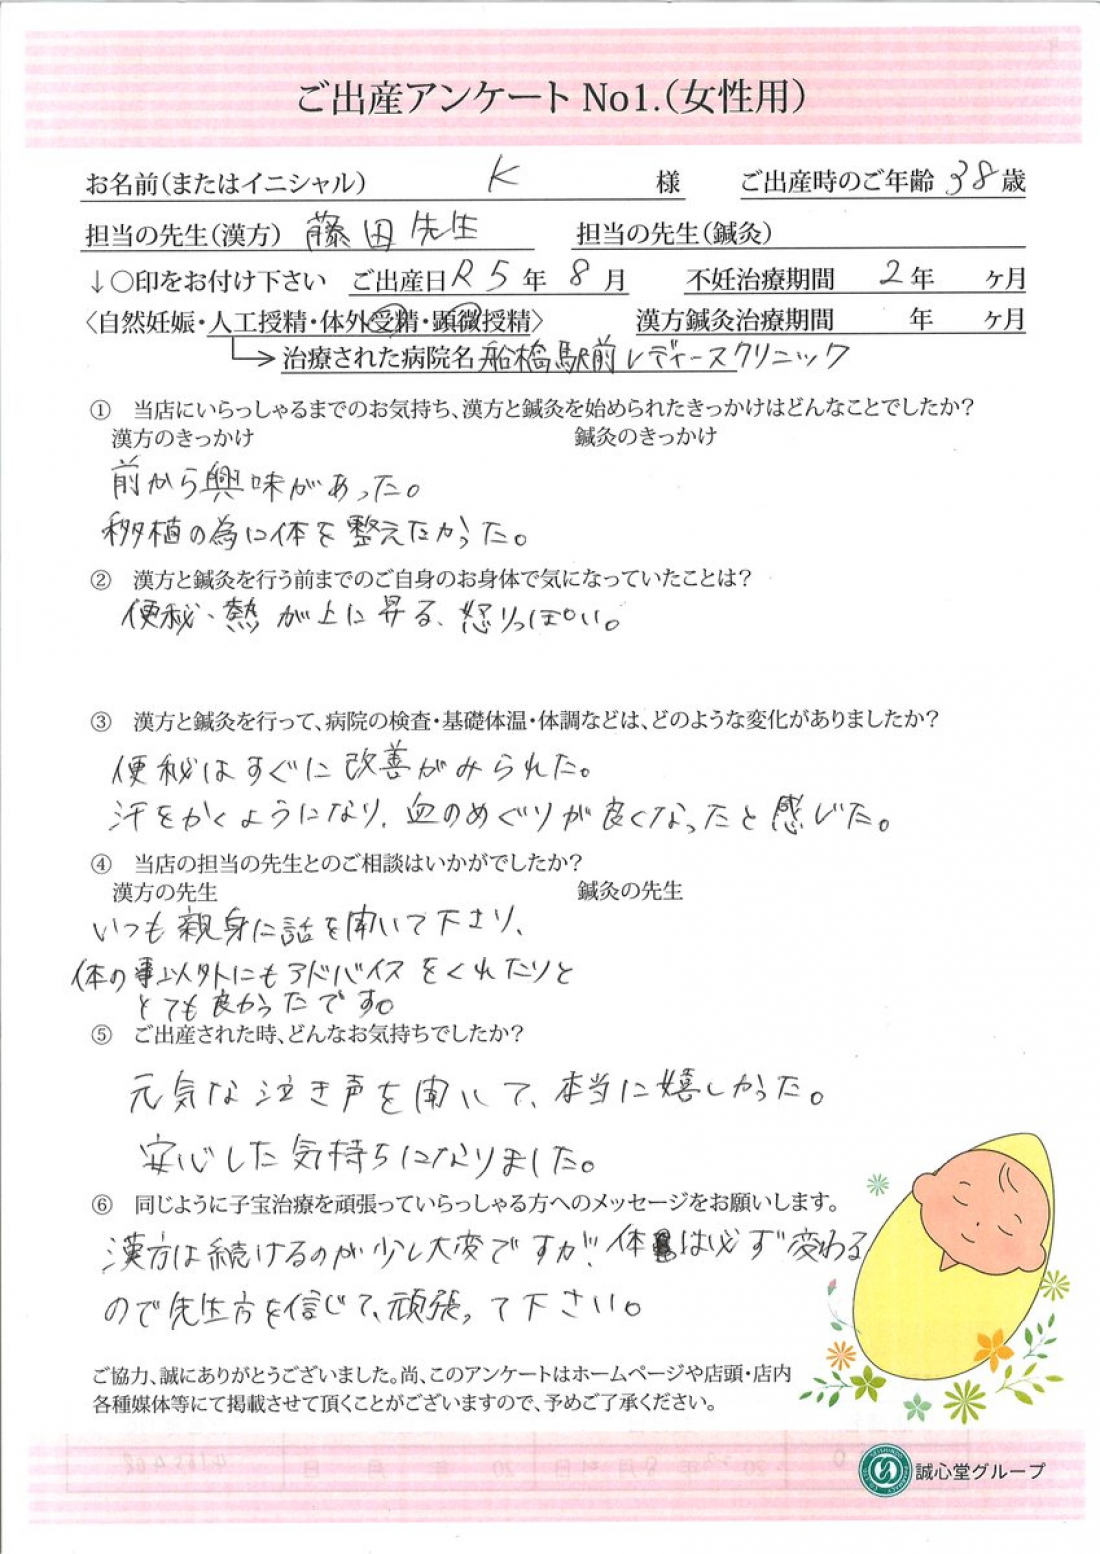 ご出産アンケート No1.(女性用)
お名前(またはイニシャル) K 様 ご出産時のご年齢 38 歳
担当の先生(漢方) 藤田先生 担当の先生(鍼灸)
↓○印をお付け下さい ご出産日 R5 年 8 月 不妊治療期間 2 年 ヶ月
〈自然妊娠・人工授精・体外受精・顕微授精〉 漢方鍼灸治療期間 年 ヶ月
治療された病院名 船橋駅前レディースクリニック
① 当店にいらっしゃるまでのお気持ち、漢方と鍼灸を始められたきっかけはどんなことでしたか?
漢方のきっかけ 鍼灸のきっかけ
前から興味があった。
移植の為に体を整えたかった。
② 漢方と鍼灸を行う前までのご自身のお身体で気になっていたことは?
便秘、熱が上に昇る、怒りっぽい。
③ 漢方と鍼灸を行って、病院の検査・基礎体温・体調などは、どのような変化がありましたか?
便秘はすぐに改善がみられた。
汗をかくようになり、血のめぐりが良くなったと感じた。
④ 当店の担当の先生とのご相談はいかがでしたか?
漢方の先生 鍼灸の先生
いつも親身に話を聞いて下さり、
体の事以外にもアドバイスをくれたりと
とても良かったです。
⑤ ご出産された時、どんなお気持ちでしたか?
元気な泣き声を聞いて、本当に嬉しかった。
安心した気持ちになりました。
⑥ 同じように子宝治療を頑張っていらっしゃる方へのメッセージをお願いします。
漢方は続けるのが少し大変ですが、体は必ず変わる
ので先生方を信じて、頑張って下さい。
ご協力、誠にありがとうございました。尚、このアンケートはホームページや店頭・店内
各種媒体等にて掲載させて頂くことがございますので、予めご了承ください。
誠心堂グループ